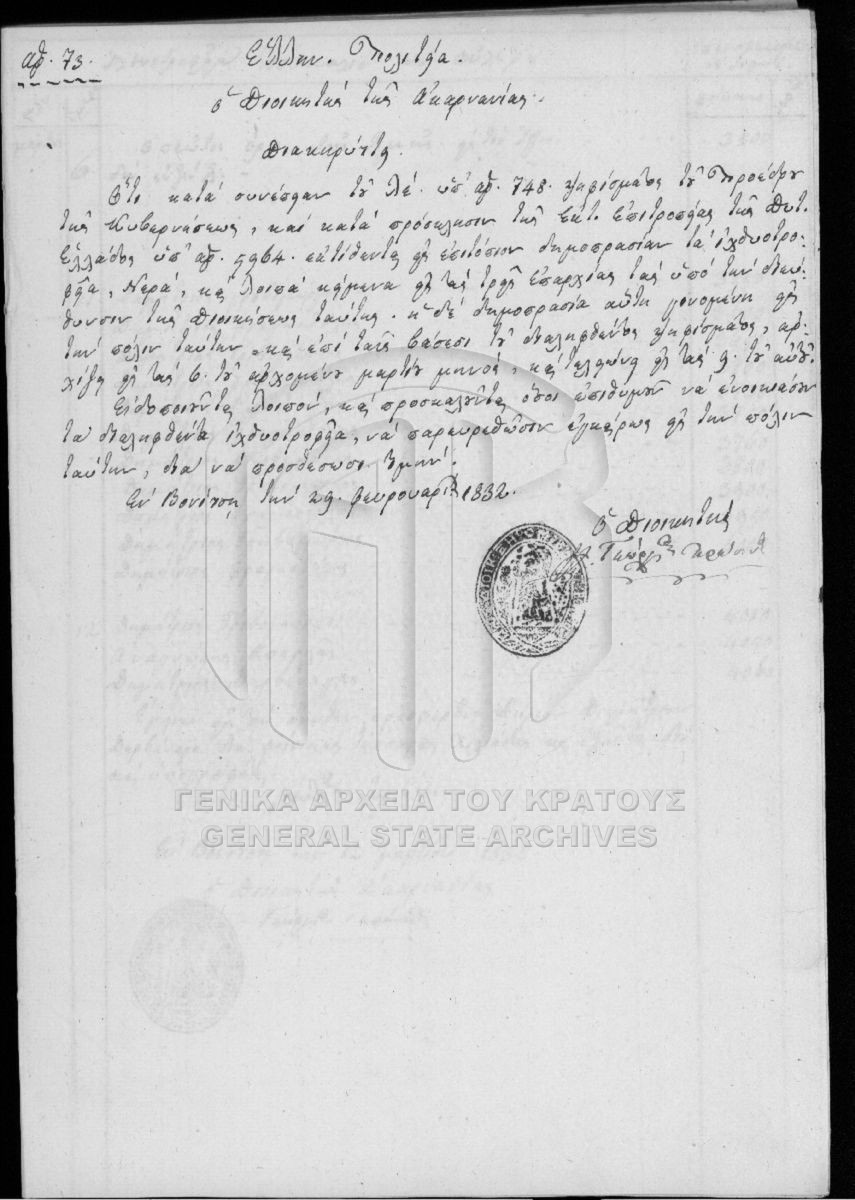 ἀρ. 73.
Ἑλλην. Πολιτεία.
Ὁ Διοικητὴς τῆς Ἀκαρνανίας.
Διακηρύττει
Ὅτι κατὰ συνέπειαν τοῦ ὑπ' ἀρ. 748. ψηφίσματος τοῦ Προέδρου
τῆς Κυβερνήσεως, καὶ κατὰ πρόσκλησιν τῆς Ἐκτ. Ἐπιτροπείας τῆς Δυτ.
Ἑλλάδος ὑπ' ἀρ. 5964. ἐκτίθενται εἰς ἐπιτόπιον δημοπρασίαν τὰ ἰχθυοτρο-
φεῖα, Νερά, καὶ λοιπὰ κείμενα εἰς τὰς τρεῖς ἐπαρχίας τὰς ὑπὸ τὴν διευ-
θυνσιν τῆς Διοικήσεως ταύτης. ἡ δὲ δημοπρασία αὕτη γενομένη εἰς
τὴν πόλιν ταύτην, καὶ ἐπὶ ταῖς βάσεσι τοῦ διαληφθέντος ψηφίσματος, ἀρ-
χίζει εἰς τὰς 6. τοῦ ἀρχομένου μαρτίου μηνὸς, καὶ τελειώνει εἰς τὰς 9. τοῦ αὐτοῦ.
Εἰδοποιοῦνται λοιπὸν, καὶ προσκαλοῦνται ὅσοι ἐπιθυμοῦν νὰ ἐνοικιάσουν
τὰ διαληφθέντα ἰχθυοτροφεῖα, νὰ παρευρεθῶσιν ἐγκαίρως εἰς τὴν πόλιν
ταύτην, διὰ νὰ προσθέσωσι
Ἐν Βονίτσῃ τὴν 29. φευρουαρίου 1832.
Ὁ Διοικητὴς
ΓΕΝΙΚΑ ΑΡΧΕΙΑ ΤΟΥ ΚΡΑΤΟΥΣ
GENERAL STATE ARCHIVES